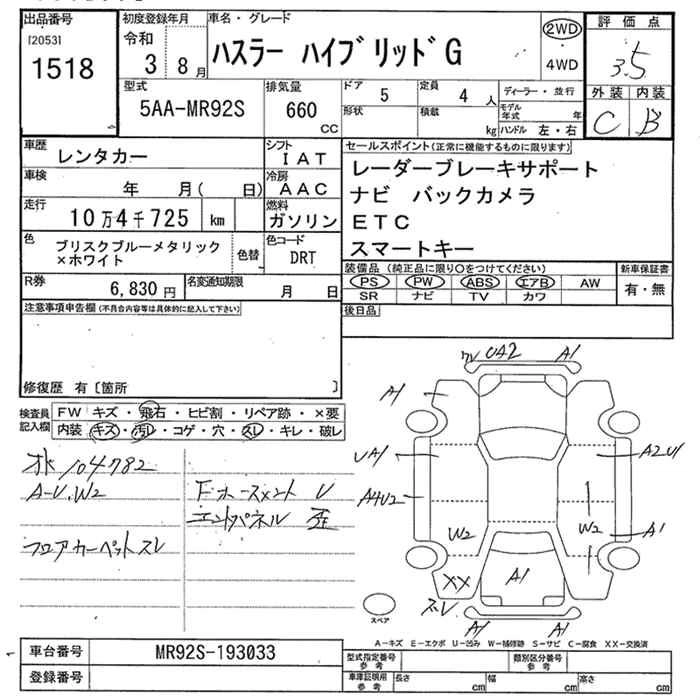 出品番号
[2053]
1518
初度登録年月
令和
3 8月
車名・グレード
ハスラー ハイブリッドG
2WD
・
4WD
評価点
3.5
外装 内装
C B
型式
5AA-MR92S
排気量
660
CC
ドア
5
定員
4 人
ディーラー・並行
形状
積載
kg
モデル
年式 年
ハンドル 左・右
車歴
レンタカー
シフト
IAT
車検
年 月( 日)
冷房
AAC
走行
10万4千725 km
燃料
ガソリン
色
ブリスクブルーメタリック
×ホワイト
色替
色コード
DRT
R券
6,830円
名変通知期限
月 日
セールスポイント(正常に機能するものに限ります)
レーダーブレーキサポート
ナビ バックカメラ
ETC
スマートキー
装備品(純正品に限り○をつけてください)
新車保証書
PS PW ABS エアB AW
SR ナビ TV カワ
有・無
後日品
注意事項申告欄(不具合内容等は具体的に記入して下さい)
修復歴 有〔箇所 〕
検査員
記入欄
FW キズ・飛石・ヒビ割・リペア跡・×要
内装 キズ・汚レ・コゲ・穴・スレ・キレ・破レ
104782
A-U、W2
フロアカーペットスレ
U
エンドパネル 歪
ワレ UA2 A1
A1
UA1 A2U1
A4U2
W2 W2 A1
XX A1
ズレ
A1 A1
スペア
A-キズ E-エクボ U-凹み W-補修跡 S-サビ C-腐食 XX-交換済
車台番号
MR92S-193033
登録番号
型式指定番号
参考
類別区分番号
参考
車庫証明用
参考
長さ cm 幅 cm 高さ cm